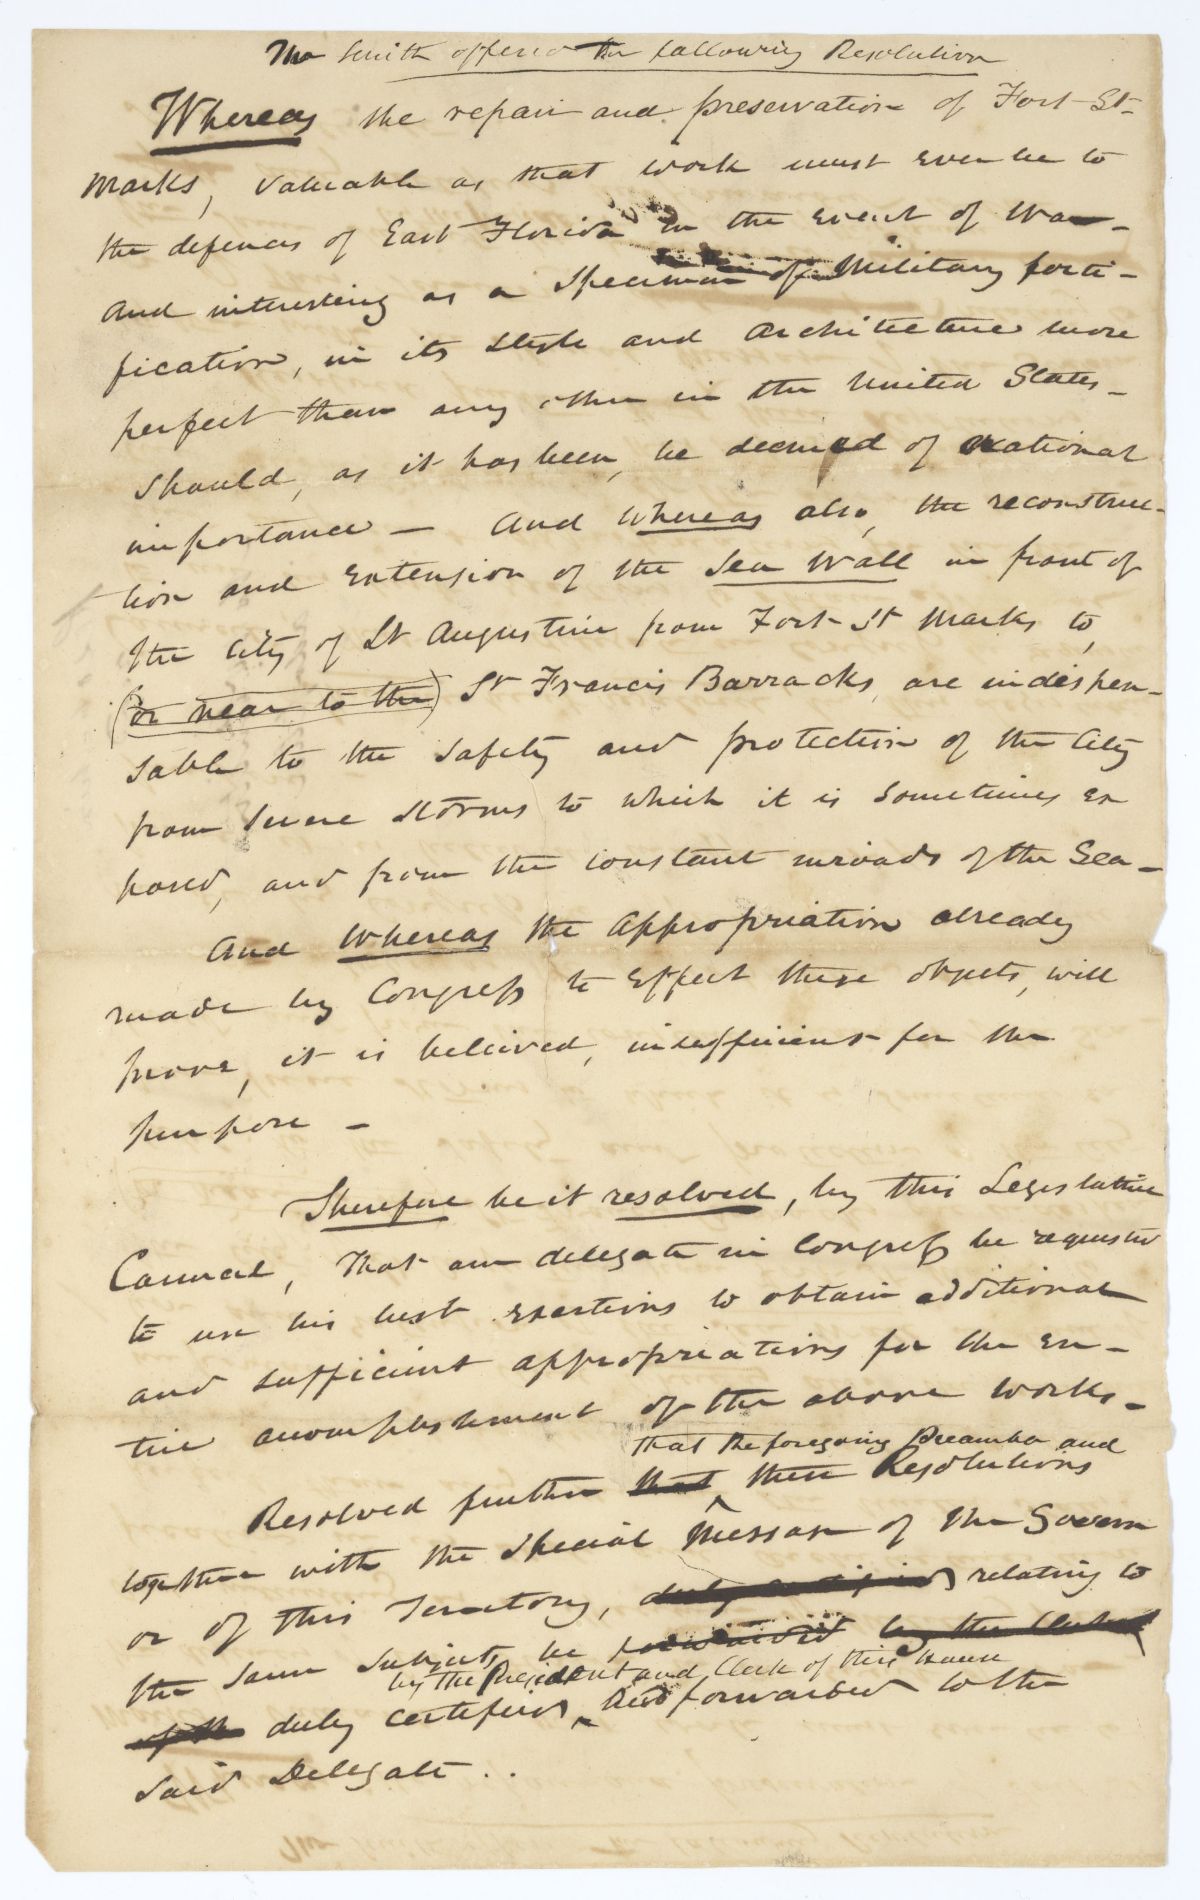 Mr Smith offered the following Resolution
Whereas the repair and preservation of Fort St.
Marks, valuable as that work must ever be to
the defences of East Florida in the event of War -
and interesting as a specimen of Military forti-
fication, in its style and architecture more
perfect than any other in the United States -
should, as it has been, be deemed of national
importance - And Whereas also, the reconstruc-
tion and extension of the Sea Wall in front of
the City of St Augustine from Fort St Marks to,
(or near to the) St Francis Barracks, are indispen-
sable to the safety and protection of the City
from severe storms to which it is sometimes ex
posed, and from the constant inroads of the Sea -
And Whereas the appropriation already
made by Congress to effect these objects, will
prove, it is beleived, insufficient for the
purpose -
Therefore be it resolved, by this Legislative
Council, That our delegate in Congress be requested
to use his best exertions to obtain additional
and sufficient appropriations for the en-
tire accomplishment of the above works -
that the foregoing Preamble and
Resolved further that these Resolutions
together with the special Message of the Govern
or of this Territory, duly certified relating to
the same subject, be forwarded by the Clerk
by the President and Clerk of this House
of the duly certified, and forwarded to the
said Delegate . .